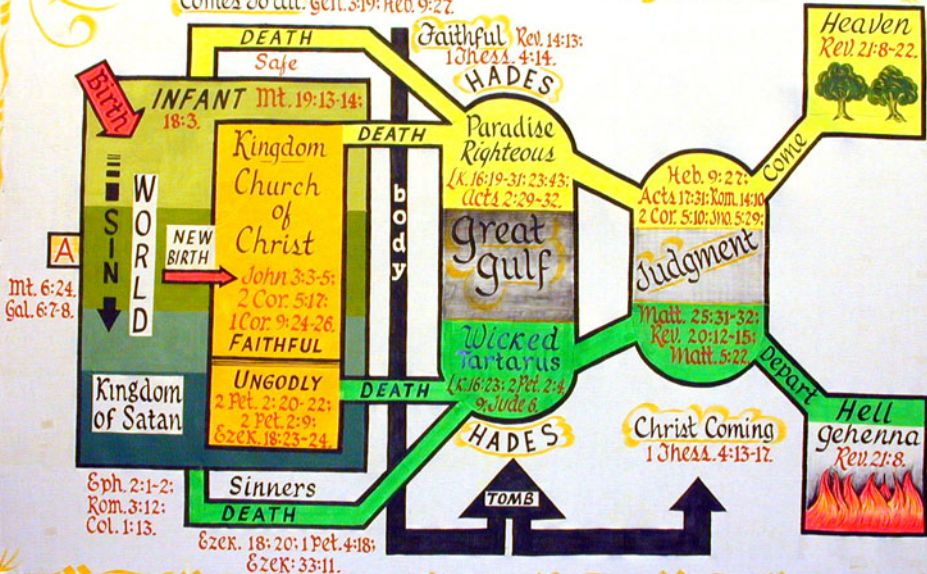 Comes to all. Gen. 3:19; Heb. 9:27.
DEATH
Safe
Faithful Rev. 14:13;
1 Thess. 4:14.
HADES
Heaven
Rev. 21:8-22.
Birth
INFANT Mt. 19:13-14;
18:3.
SIN
WORLD
A
Mt. 6:24.
Gal. 6:7-8.
NEW
BIRTH
Kingdom
Church
of
Christ
John 3:3-5;
2 Cor. 5:17;
1 Cor. 9:24-26.
FAITHFUL
UNGODLY
2 Pet. 2:20-22;
2 Pet. 2:9;
Ezek. 18:23-24.
Kingdom
of Satan
DEATH
body
DEATH
Paradise
Righteous
Lk. 16:19-31; 23:43;
Acts 2:29-32.
Great
gulf
Wicked
Tartarus
Lk. 16:23; 2 Pet. 2:4,
9; Jude 6.
HADES
Come
Heb. 9:27;
Acts 17:31; Rom. 14:10
2 Cor. 5:10; Jno. 5:29;
Judgment
Matt. 25:31-32;
Rev. 20:12-15;
Matt. 5:22.
Depart
Hell
Gehenna
Rev. 21:8.
Christ Coming
1 Thess. 4:13-17.
TOMB
Eph. 2:1-2;
Rom. 3:12;
Col. 1:13.
Sinners
DEATH
Ezek. 18:20; 1 Pet. 4:18;
Ezek: 33:11.